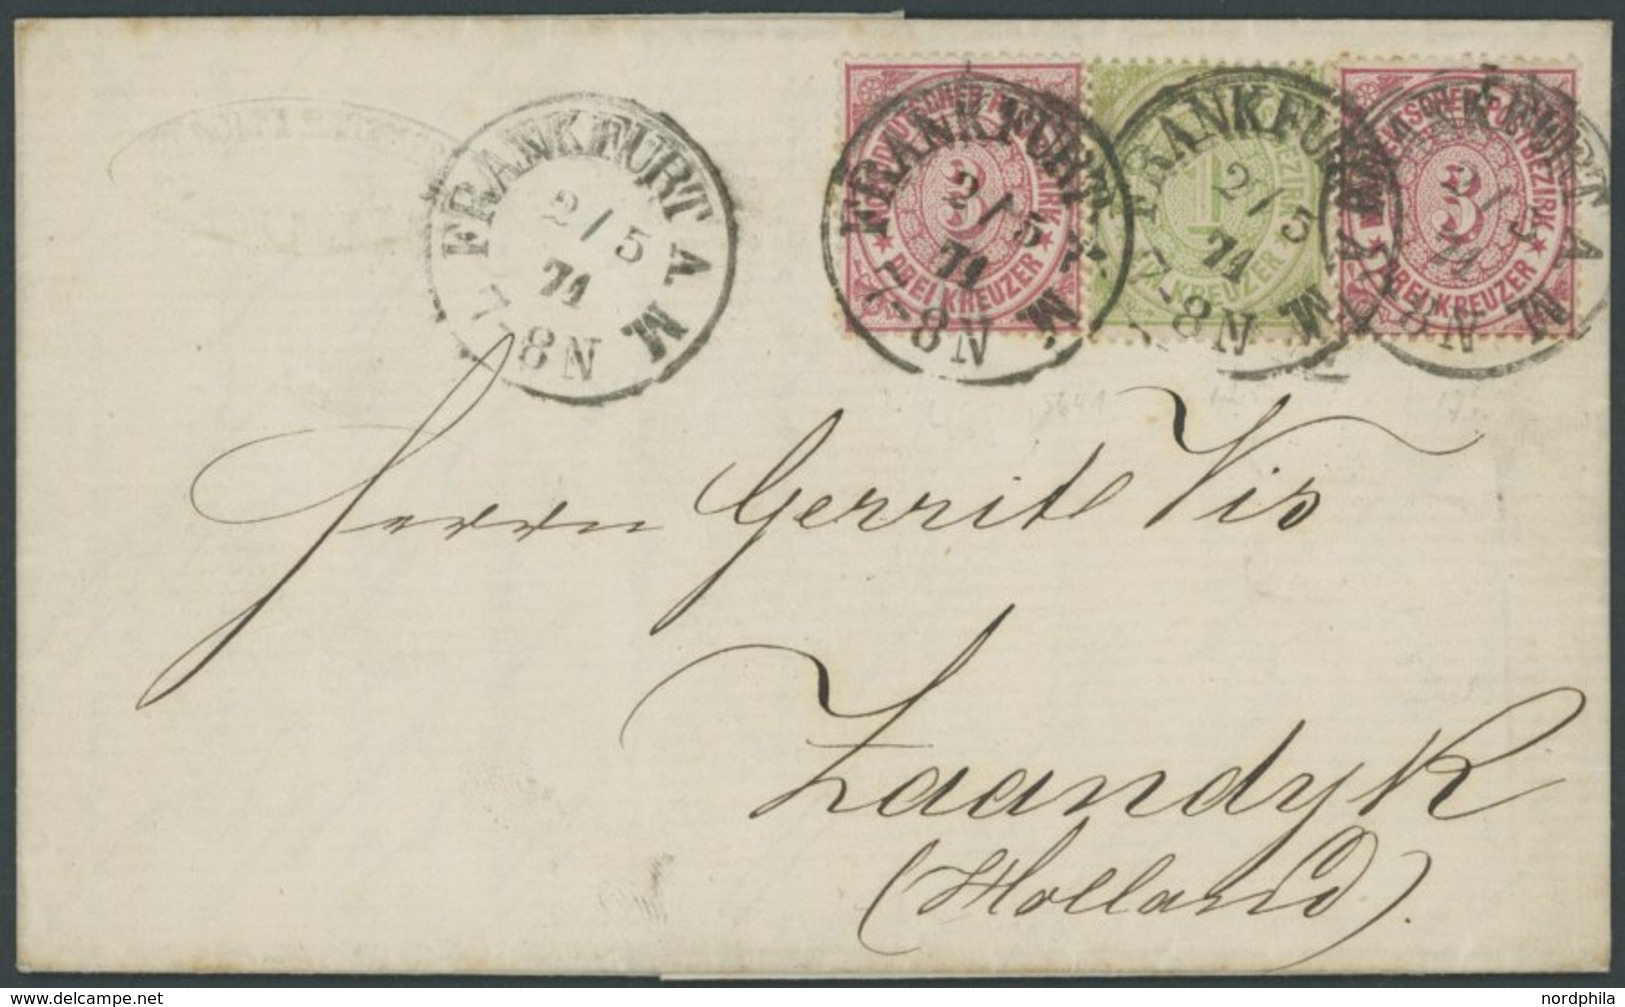 FRANKFURT A. M.
2/5
71
7-8N
NORDDEUTSCHER POSTBEZIRK
3
DREI KREUZER
FRANKFURT A. M.
2/5
71
7-8N
1
KREUZER
FRANKFURT A. M.
2/5
71
7-8N
NORDDEUTSCHER POSTBEZIRK
3
DREI KREUZER
FRANKFURT A. M.
2/5
71
7-8N
Herrn Gerrit Vis
Zaandyk
(Holland).
www.delcampe.net
nordphila